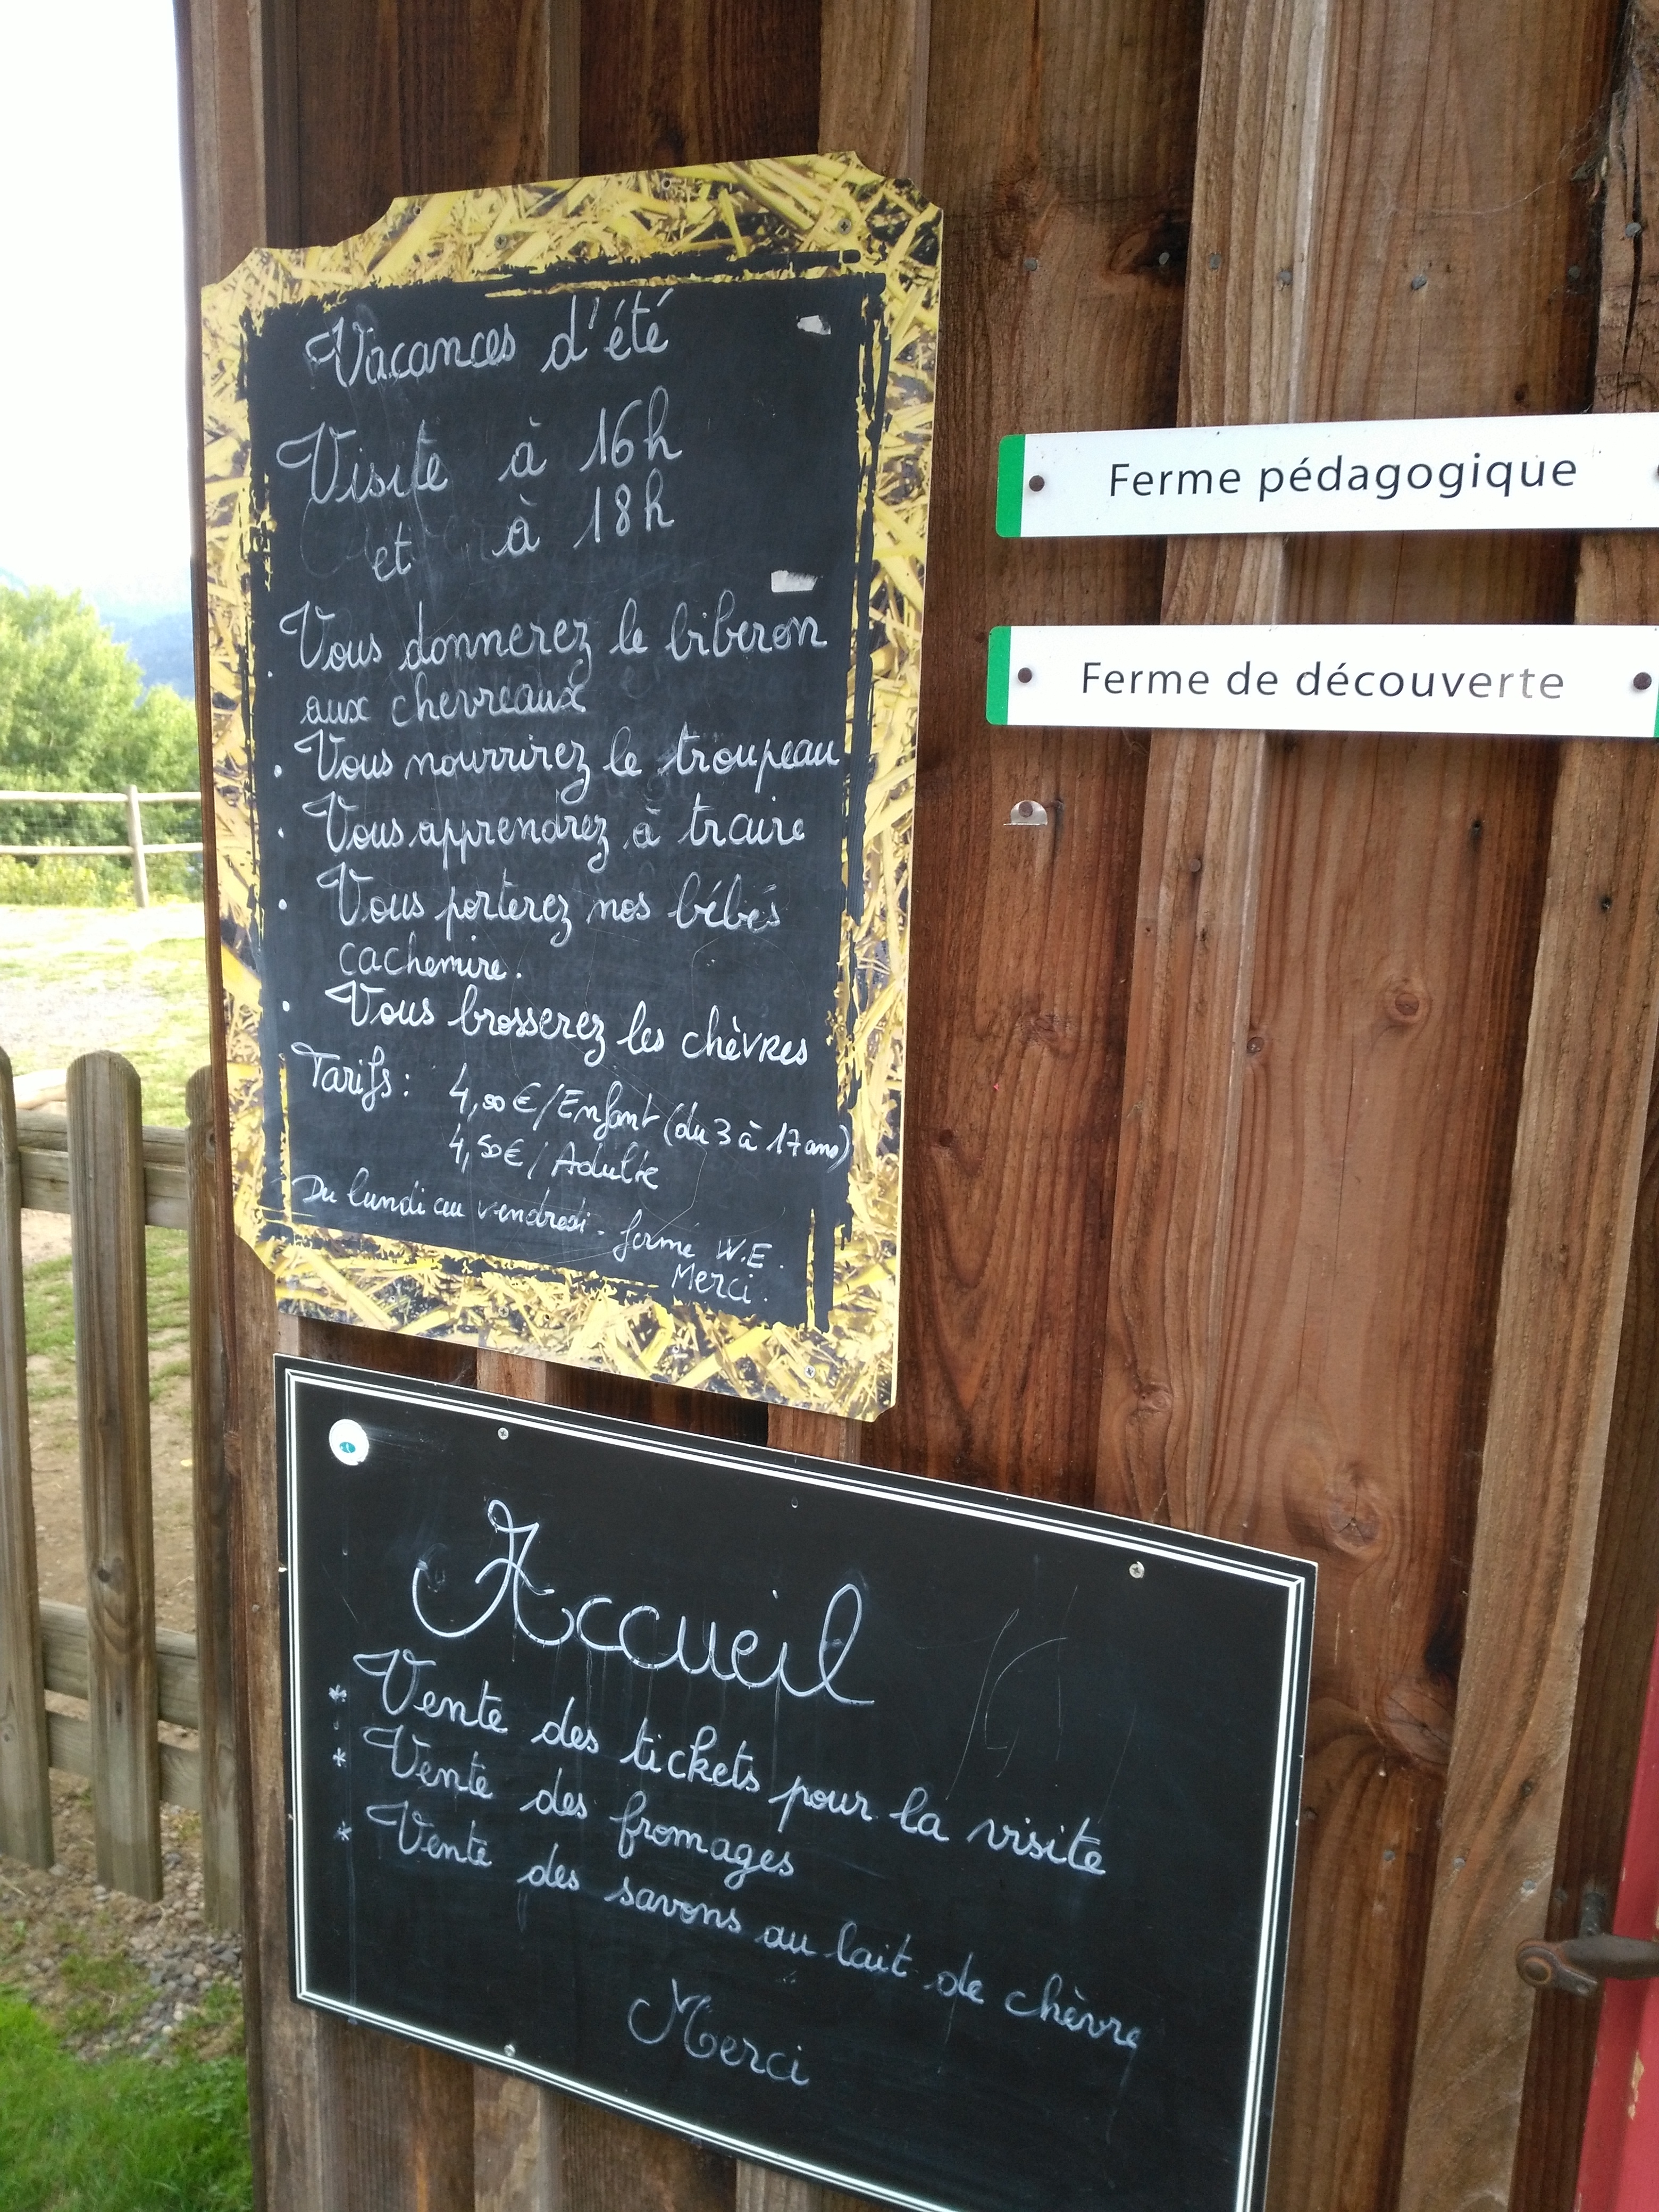 Vacances d'été
Visite à 16h
et à 18h
. Vous donnerez le biberon
aux chevreaux
. Vous nourrirez le troupeau
. Vous apprendrez à traire
. Vous porterez nos bébés
cachemire.
. Vous brosserez les chèvres
Tarifs : 4,00€/Enfant (du 3 à 17 ans)
4,50€/Adulte
Du lundi au vendredi - fermé W.E.
Merci.
Ferme pédagogique
Ferme de découverte
Accueil
* Vente des tickets pour la visite
* Vente des fromages
* Vente des savons au lait de chèvre
Merci